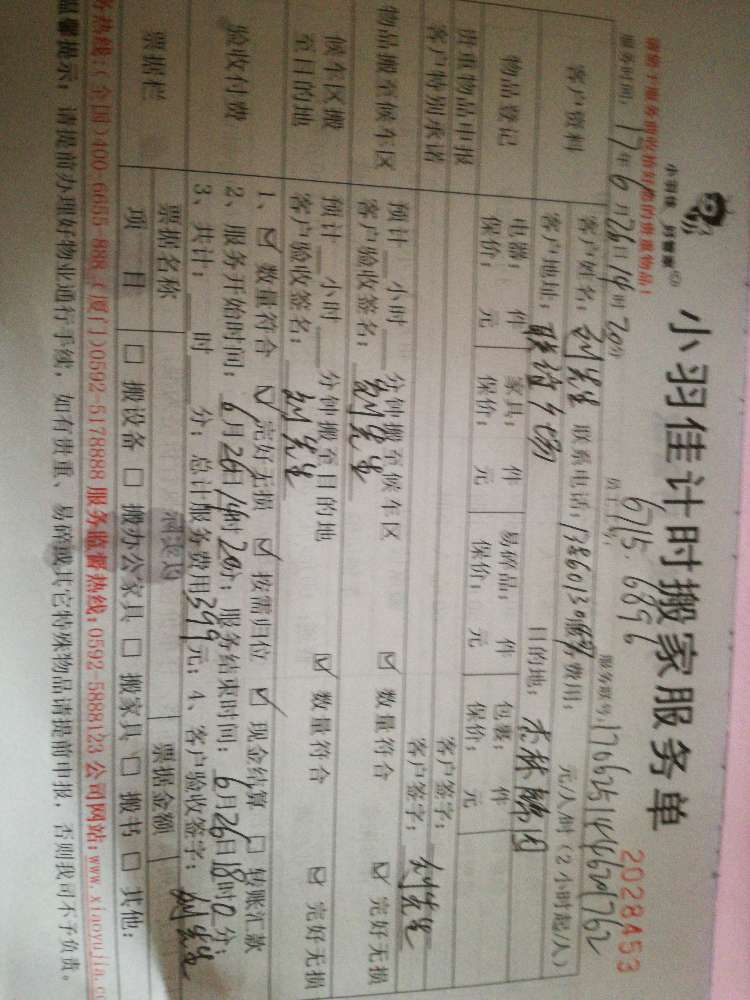 小羽佳计时搬家服务单
2028453
小羽佳 好管家
服务时间: 17年6月26日14时20分
员工工号: 6715. 6896
客户资料
客户姓名: 刘先生 联系电话: 服务费用: 元/人/时 (2小时起/人)
客户地址: 目的地:
物品登记
电器: 件 家具: 件 易碎品: 件 包裹: 件
保价: 元 保价: 元 保价: 元 保价: 元
贵重物品申报 客户签字:
客户特别承诺 客户签字: 刘先生
物品搬至候车区
预计 小时 分钟搬至候车区 ☑ 数量符合 ☑ 完好无损
客户验收签名: 刘先生
候车区搬至目的地
预计 小时 分钟搬至目的地 ☑ 数量符合 ☑ 完好无损
客户验收签名: 刘先生
验收付费
1、☑ 数量符合 ☑ 完好无损 ☑ 按需归位 ☑ 现金结算 □ 转账汇款
2、服务开始时间: 6月26日14时20分; 服务结束时间: 6月26日18时0分;
3、共计: 时 分; 总计服务费用399元; 4、客户验收签字: 刘先生
票据栏
票据名称 票据金额
项 目 □ 搬设备 □ 搬办公家具 □ 搬家具 □ 搬书 □ 其他:
务热线:(全国)400-6655-888 (厦门)0592-5178888 服务监督热线:0592-5888123 公司网站:www.xiaoyujia.co
温馨提示: 请提前办理好物业通行手续, 如有贵重、易碎或其它特殊物品请提前申报, 否则我司不予负责。